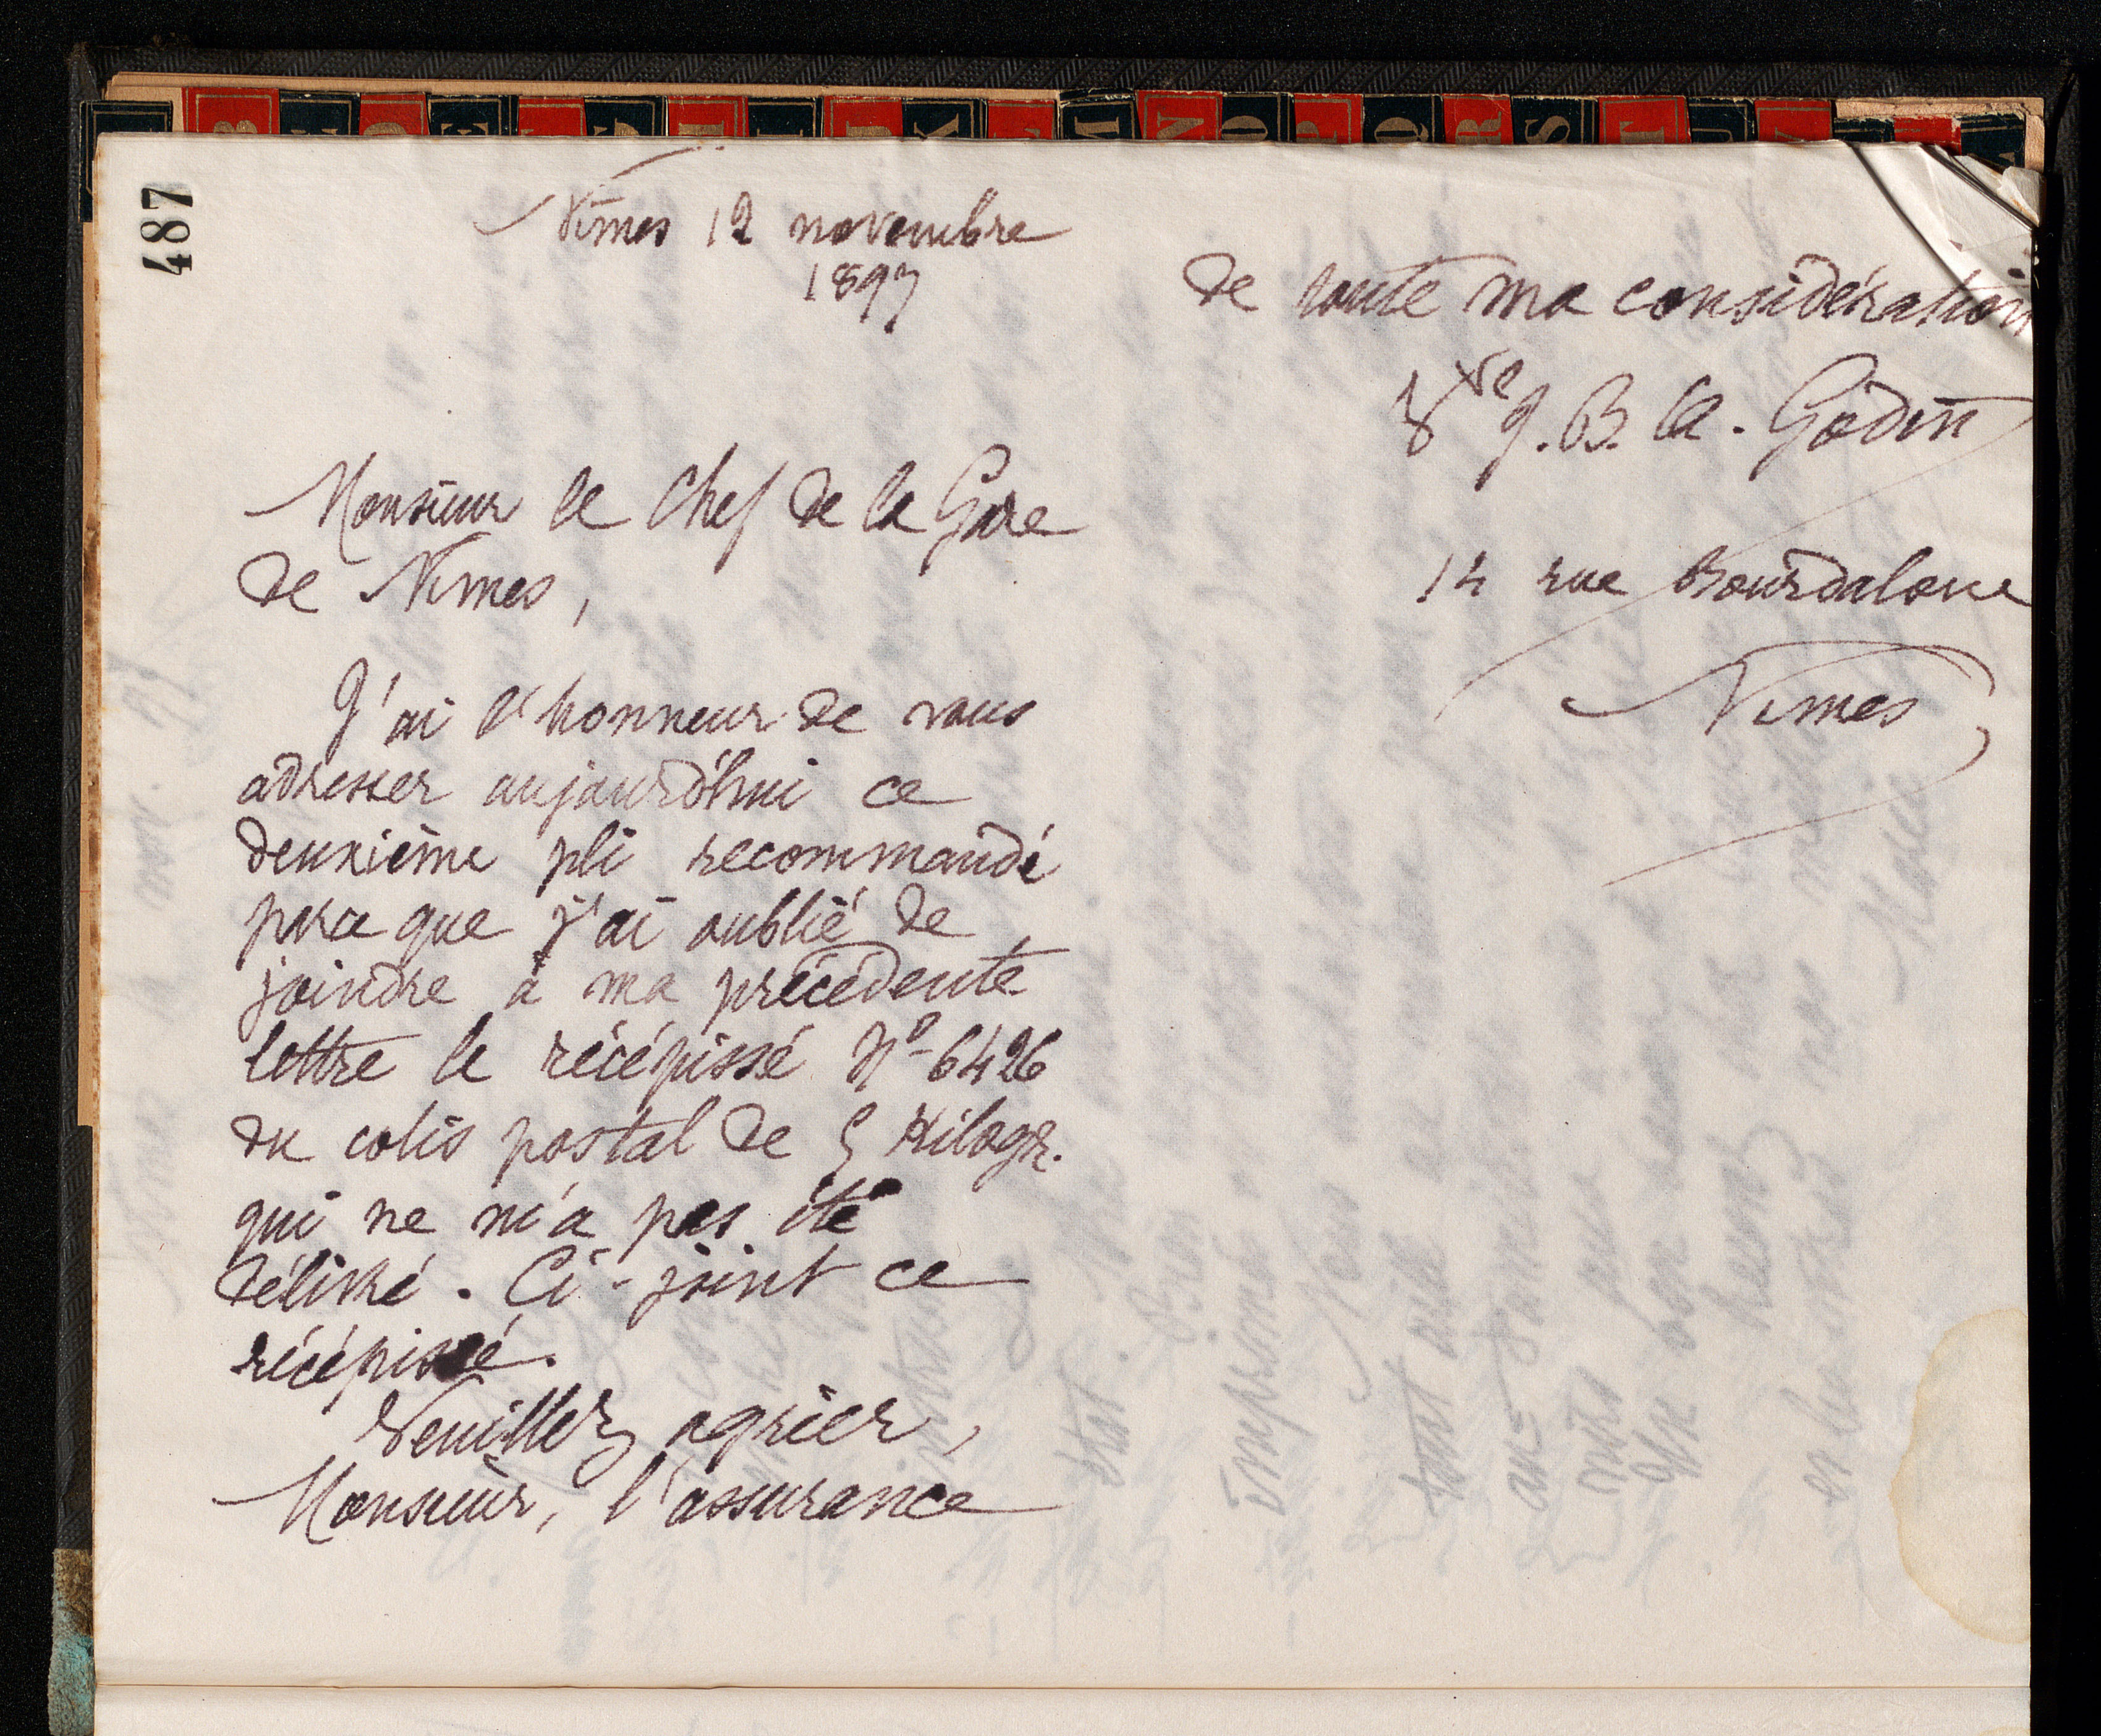 487
Nîmes 12 novembre
1897
Monsieur le Chef de la Gare
de Nîmes,
J'ai l'honneur de vous
adresser aujourd'hui ce
deuxième pli recommandé
parce que j'ai oublié de
joindre à ma précédente
lettre le récépissé No 6426
du colis postal de 5 Kilogr.
qui ne m'a pas été
délivré. Ci-joint ce
récépissé.
Veuillez agréer,
Monsieur, l'assurance
de toute ma considération
Vve J. B. A. Godin
14 rue Bourdaloue
Nîmes